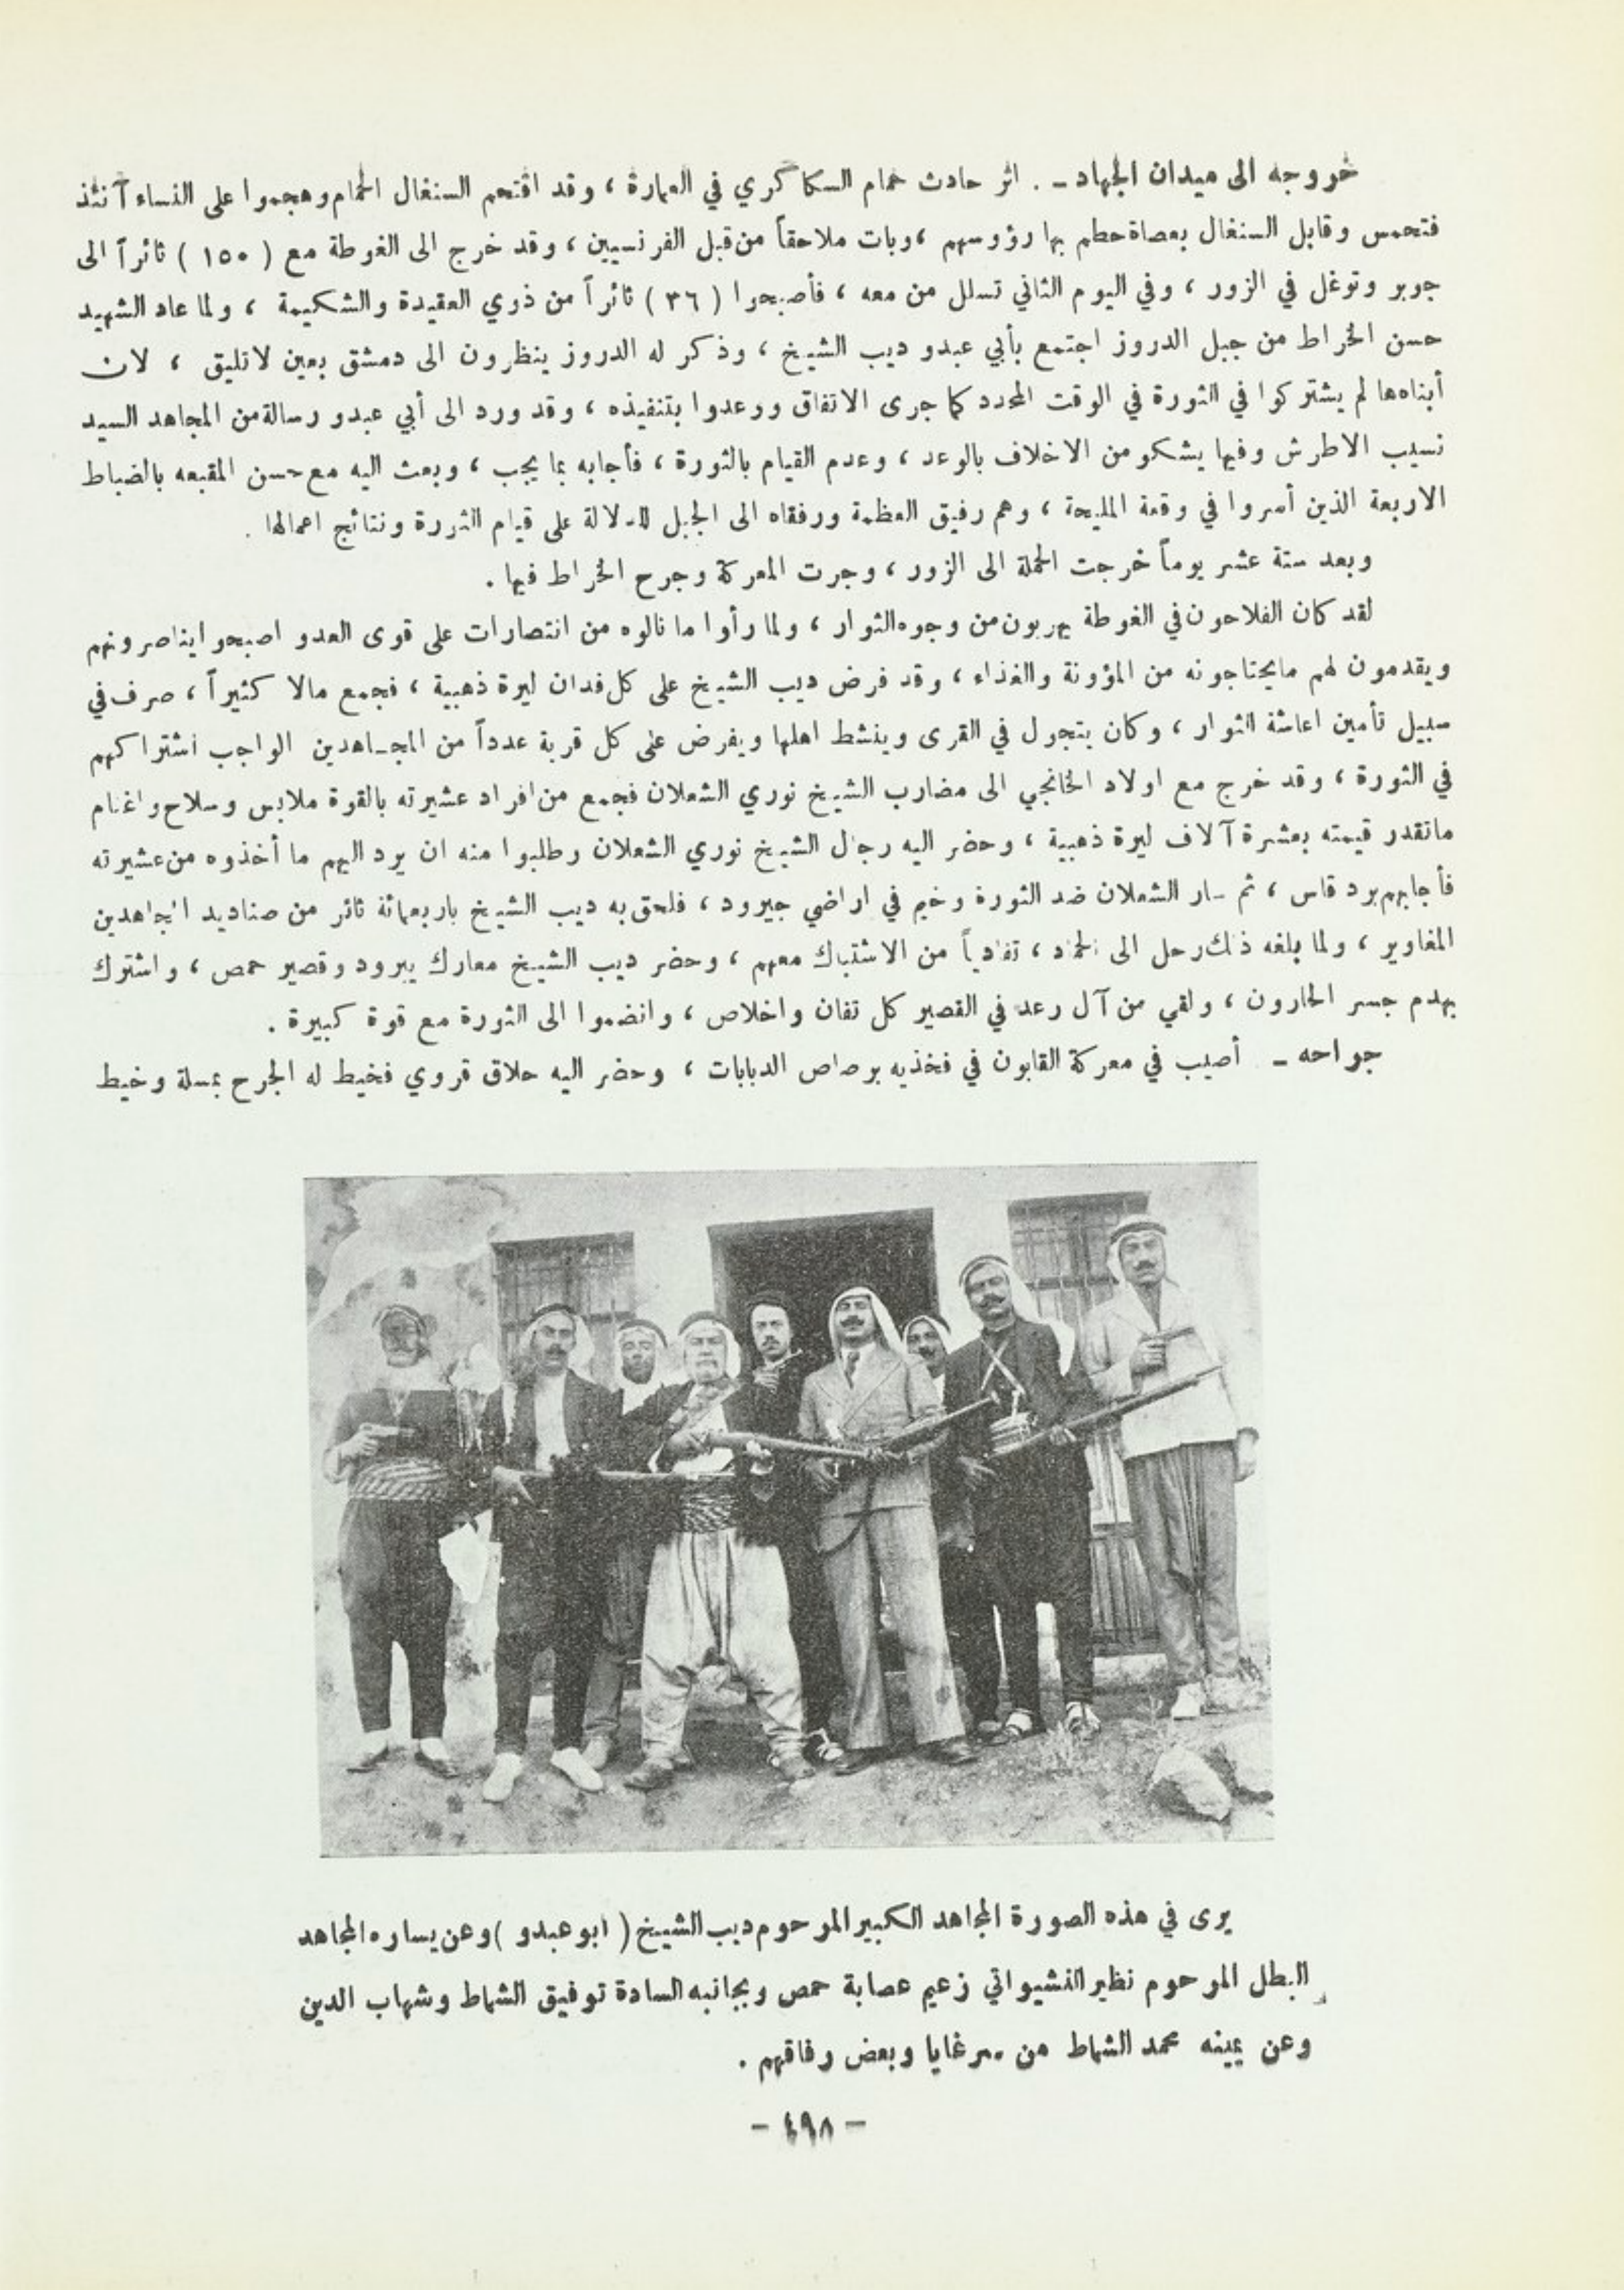 خروجه الى ميدان الجهاد ـ . اثر حادث حمام السكاكري في العمارة ، وقد اقتحم السنغال الحمام وهجموا على النساء آنئذ
فتحمس وقابل السنغال بعصاة حطم بها رؤوسهم ، وبات ملاحقاً من قبل الفرنسيين ، وقد خرج الى الغوطة مع ( ١٥٠ ) ثائراً الى
جوبر وتوغل في الزور ، وفي اليوم الثاني تسلل من معه ، فأصبحوا ( ٣٦ ) ثائراً من ذوي العقيدة والشكيمة ، ولما عاد الشهيد
حسن الخراط من جبل الدروز اجتمع بأبي عبدو ديب الشيخ ، وذكر له الدروز ينظرون الى دمشق بعين لاتليق ، لان
أبناءها لم يشتركوا في الثورة في الوقت المحدد كما جرى الاتفاق ووعدوا بتنفيذه ، وقد ورد الى أبي عبدو رسالة من المجاهد السيد
نسيب الاطرش وفيها يشكو من الاخلاف بالوعد ، وعدم القيام بالثورة ، فأجابه بما يجب ، وبعث اليه مع حسن المقبعه بالضباط
الاربعة الذين أسروا في وقعة المليحة ، وهم رفيق العظمة ورفقاه الى الجبل للدلالة على قيام الثورة ونتائج اعمالها .
وبعد ستة عشر يوماً خرجت الحملة الى الزور ، وجرت المعركة وجرح الخراط فيها .
لقد كان الفلاحون في الغوطة يهربون من وجوه الثوار ، ولما رأوا ما نالوه من انتصارات على قوى العدو اصبحوا يناصرونهم
ويقدمون لهم مايحتاجونه من المؤونة والغذاء ، وقد فرض ديب الشيخ على كل فدان ليرة ذهبية ، فجمع مالا كثيراً ، صرف في
سبيل تأمين اعاشة الثوار ، وكان يتجول في القرى وينشط اهلها ويفرض على كل قرية عدداً من المجـاهدين الواجب اشتراكهم
في الثورة ، وقد خرج مع اولاد الخانجي الى مضارب الشيخ نوري الشعلان فجمع من افراد عشيرته بالقوة ملابس وسلاح واغنام
ماتقدر قيمته بعشرة آلاف ليرة ذهبية ، وحضر اليه رجال الشيخ نوري الشعلان وطلبوا منه ان يرد اليهم ما أخذوه من عشيرته
فأجابهم برد قاس ، ثم سار الشعلان ضد الثورة وخيم في اراضي جيرود ، فلحق به ديب الشيخ باربعمائة ثائر من صناديد المجاهدين
المغاوير ، ولما بلغه ذلك رحل الى الحماد ، تفادياً من الاشتباك معهم ، وحضر ديب الشيخ معارك يبرود وقصير حمص ، واشترك
بهدم جسر الحارون ، ولقي من آل رعد في القصير كل تفان واخلاص ، وانضموا الى الثورة مع قوة كبيرة .
جراحه ـ أصيب في معركة القابون في فخذيه برصاص الدبابات ، وحضر اليه حلاق قروي فخيط له الجرح بمسلة وخيط
يرى في هذه الصورة المجاهد الكبير المرحوم ديب الشيخ ( ابو عبدو ) وعن يساره المجاهد
البطل المرحوم نظير النشيواتي زعيم عصابة حمص وبجانبه السادة توفيق الشماط وشهاب الدين
وعن يمينه محمد الشماط من سرغايا وبعض رفاقهم .
- ٤٩٨ -